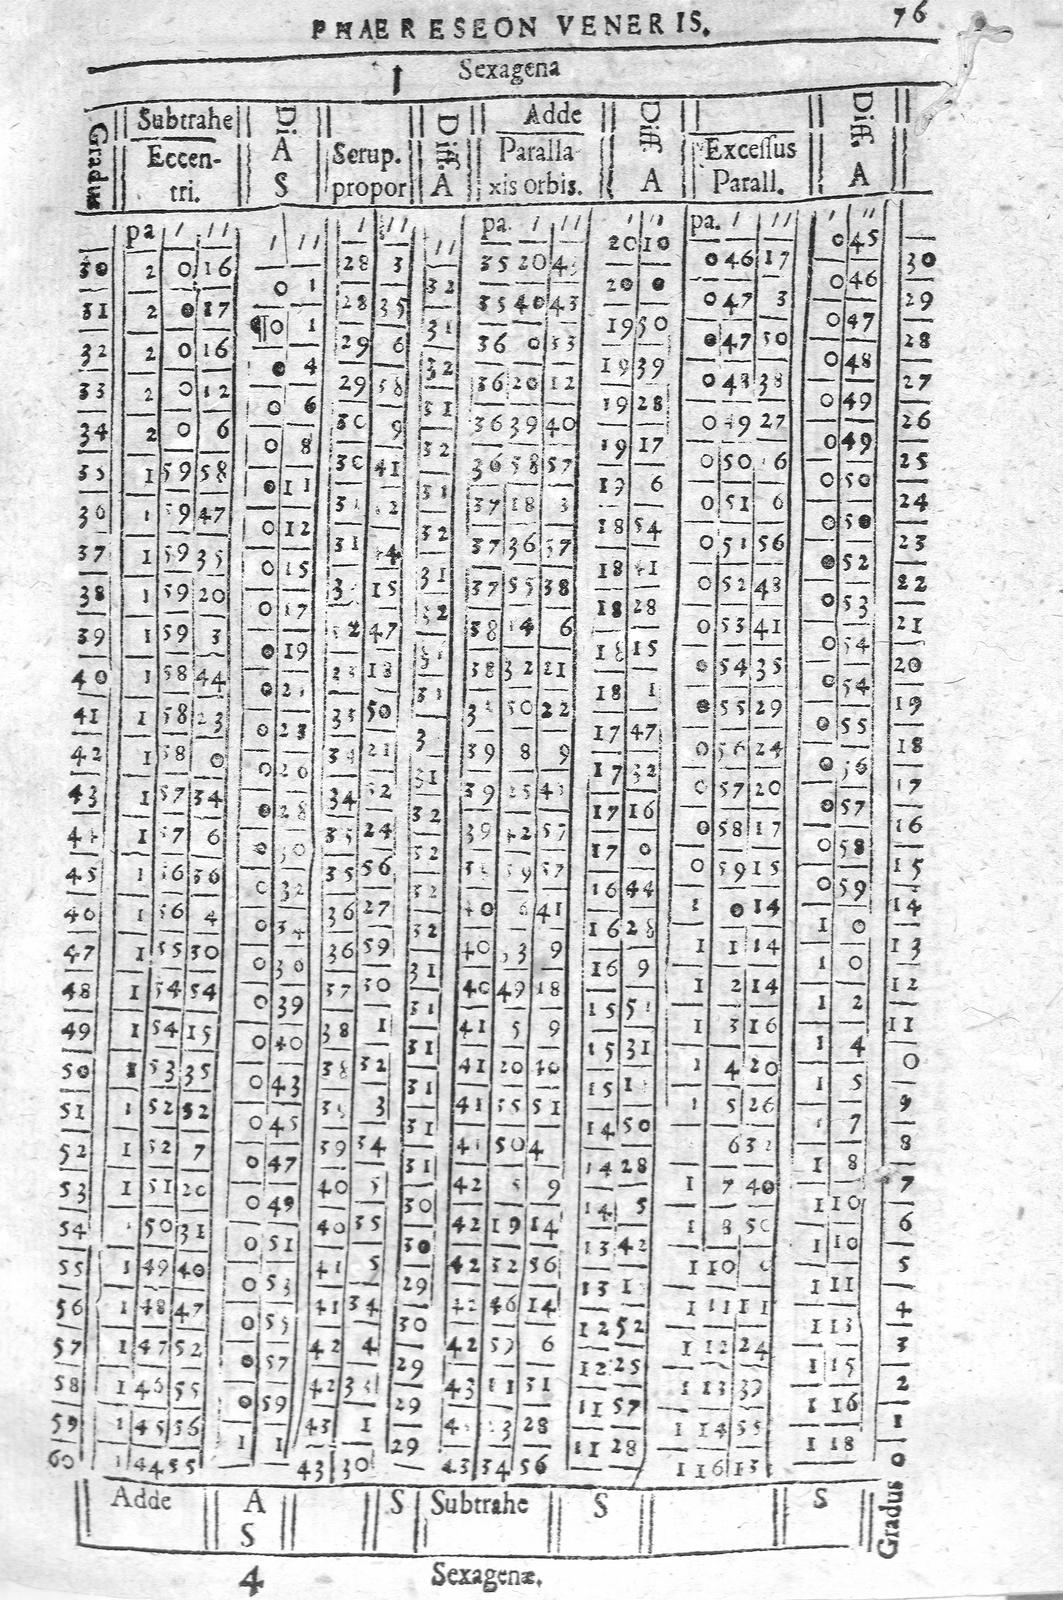 PHAERESEON VENERIS. 76
1 Sexagena
Gradus Subtrahe Diff. Adde Diff. Diff.
Eccen- A Scrup. Diff. Paralla Excessus
tri. S propor A xis orbis. A Parall. A
pa ′ ″ ′ ″ ′ ″ ″ pa. ′ ″ ′ ″ pa. ′ ″ ′ ″
20 10 0 45
30 2 0 16 28 3 35 20 0 46 17 30
0 1 32 20 0 0 46
31 2 0 17 28 35 35 40 43 0 47 3 29
0 1 31 19 50 0 47
32 2 0 16 29 6 36 0 33 0 47 50 28
0 4 32 19 39 0 48
33 2 0 12 29 38 36 20 12 0 48 38 27
0 6 31 19 28 0 49
34 2 0 6 30 9 36 39 40 0 49 27 26
0 8 32 19 17 0 49
35 1 59 58 30 41 36 58 57 0 50 6 25
0 11 31 19 6 0 50
36 1 59 47 37 18 3 0 51 6 24
0 12 32 18 54 0 50
37 1 59 35 31 37 36 57 0 51 56 23
0 15 31 18 41 0 52
38 1 59 20 15 37 55 38 0 52 48 22
0 17 32 18 28 0 53
39 1 59 3 47 38 14 6 0 53 41 21
0 19 18 15 0 54
40 1 58 44 18 38 32 21 0 54 35 20
0 21 31 18 1 0 54
41 1 58 23 33 50 50 22 0 55 29 19
0 23 17 47 0 55
42 1 58 0 34 21 39 8 9 0 56 24 18
0 26 31 17 32 0 56
43 1 57 34 34 52 39 25 0 57 20 17
0 28 32 17 16 0 57
44 1 57 6 35 24 39 42 57 0 58 17 16
0 30 32 17 0 0 58
45 1 56 36 35 56 59 57 0 59 15 15
0 32 32 16 44 0 59
46 1 56 4 36 27 40 41 1 0 14 14
0 34 32 16 28 1 0
47 1 55 30 36 59 40 33 9 1 1 14 13
0 36 31 16 9 1 0
48 1 54 54 37 30 40 49 18 1 2 14 12
0 39 31 15 51 1 2
49 1 54 15 38 1 41 5 9 1 3 16 11
0 40 31 15 31 1 4
50 1 53 35 38 32 41 20 40 1 4 20 0
0 43 31 15 1 1 5
51 1 52 52 3 41 35 51 1 5 26 9
0 45 31 14 50 1 7
52 1 52 7 39 34 41 50 4 6 32 8
0 47 31 14 28 1 8
53 1 51 20 40 5 42 5 9 1 7 40 7
0 49 30 14 5 1 10
54 50 31 40 35 42 19 14 1 8 50 6
0 51 30 13 42 1 10
55 1 49 40 41 5 42 32 56 1 10 0 5
0 53 29 13 1 1 11
56 1 48 47 41 34 42 46 14 1 11 11 4
0 55 30 12 52 1 13
57 1 47 52 42 4 42 59 6 1 12 24 3
0 57 29 12 25 1 15
58 1 46 55 42 33 43 11 31 1 13 39 2
0 59 29 11 57 1 16
59 1 45 56 43 1 23 28 1 14 55 1
1 1 29 11 28 1 18
60 1 44 55 43 30 43 34 56 1 16 13 0
Adde A S Subtrahe S S Gradus
S
4 Sexagenæ.